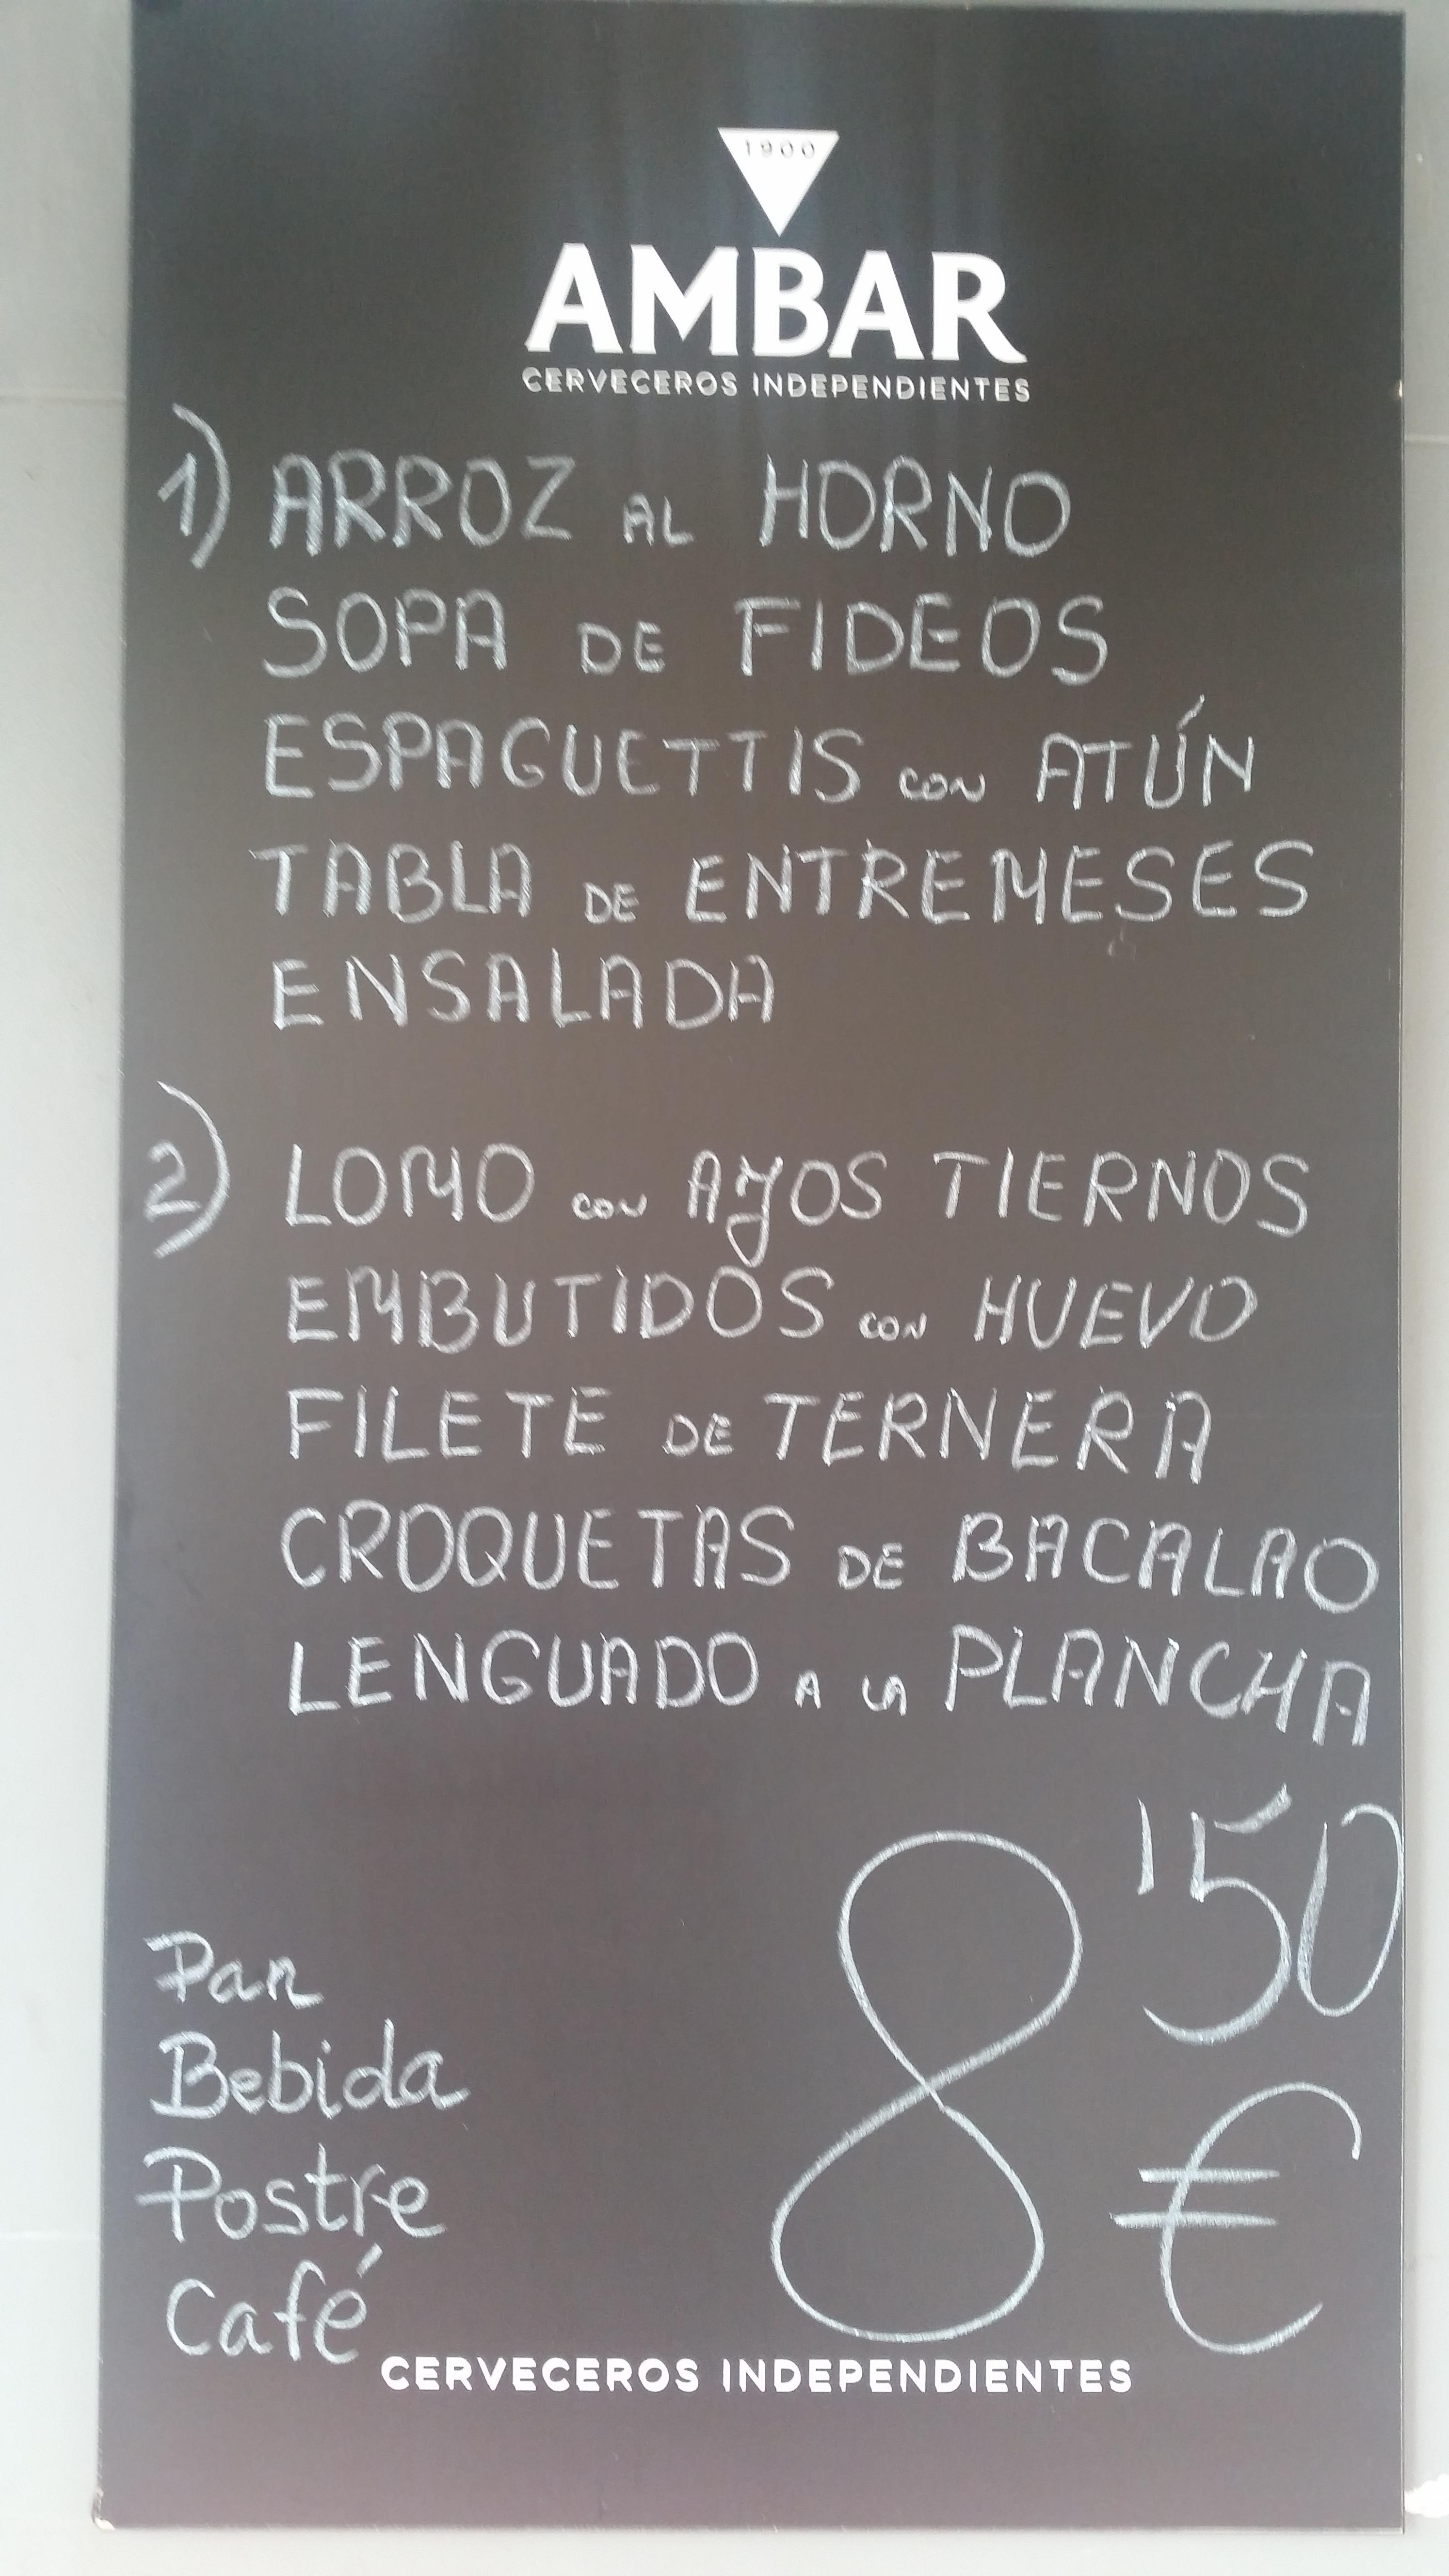 1900
AMBAR
CERVECEROS INDEPENDIENTES
1) ARROZ AL HORNO
SOPA DE FIDEOS
ESPAGUETTIS CON ATÚN
TABLA DE ENTREMESES
ENSALADA
2) LOMO CON AJOS TIERNOS
EMBUTIDOS CON HUEVO
FILETE DE TERNERA
CROQUETAS DE BACALAO
LENGUADO A LA PLANCHA
8'50 €
Pan
Bebida
Postre
Café
CERVECEROS INDEPENDIENTES